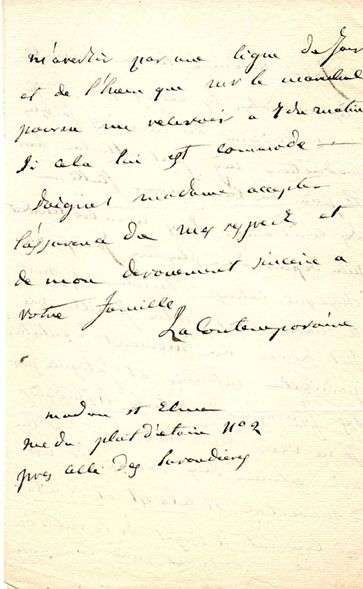 m'avertir par une ligne du Jour
et de l'heure que mr le marechal
pourra me recevoir a 7 du matin
Si cela lui est commode —
Daignez madame accepter
l'assurance de mes respects et
de mon devouement sincere a
votre famille
La Contemporaine
madame st Elme
rue du plat d'etain n° 2
pres celle des lavandieres